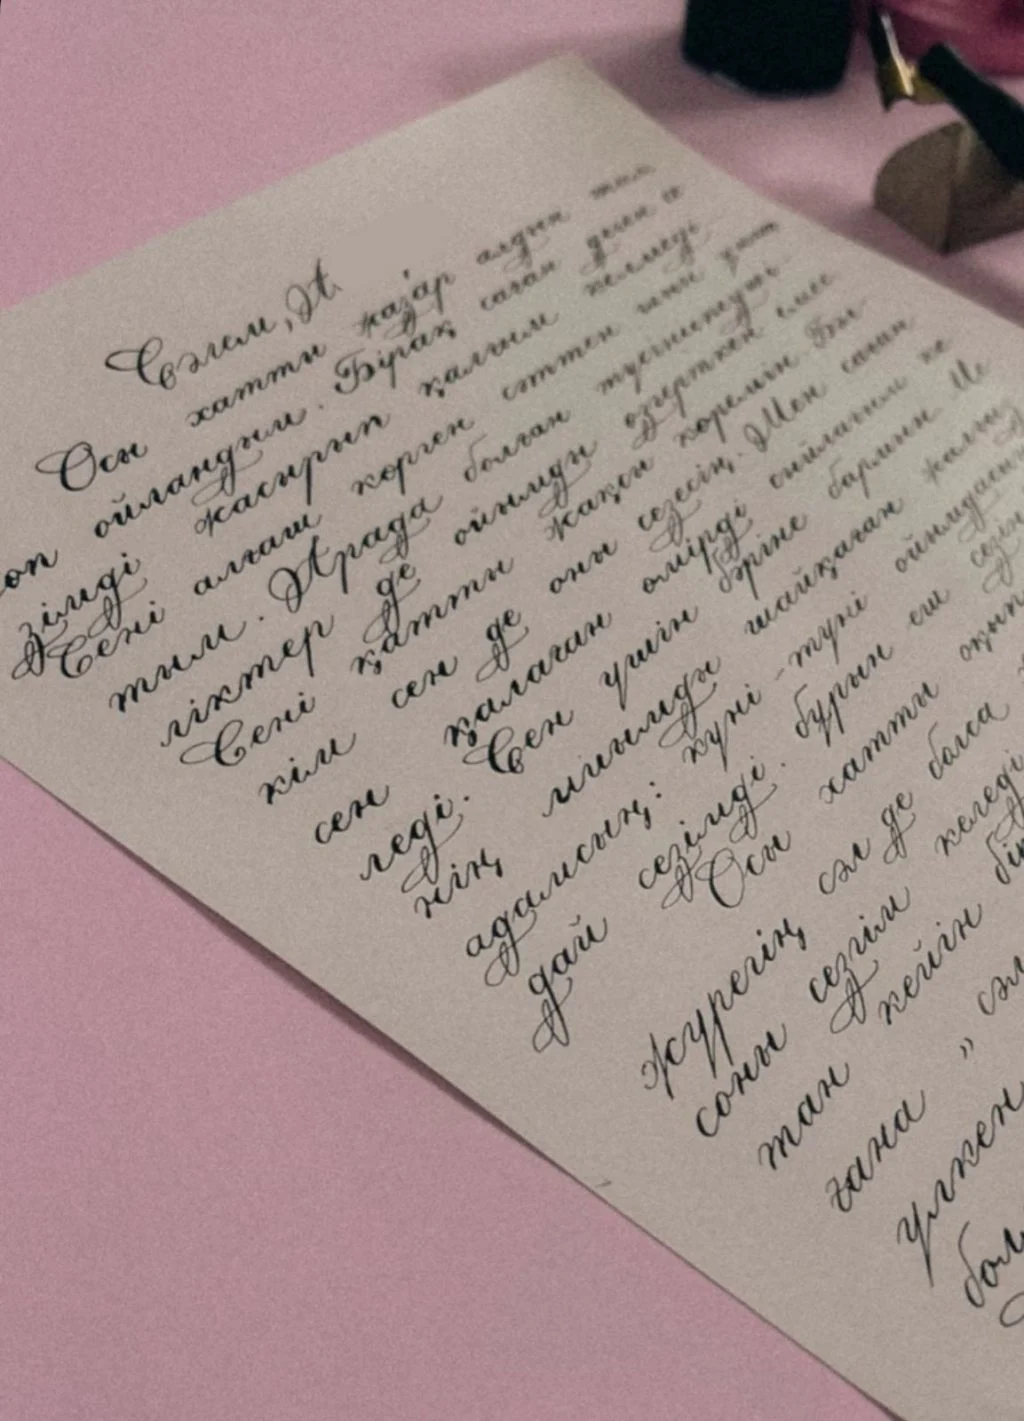 Сәлем, А
Осы хатты жазар алдын тым
өп ойландым. Бірақ саған деген се
зімді жасырып қалғым келмеді
Сені алғаш көрген сәттен ұнат
тым. Арада болған түсініспеуші
ліктер де ойымды өзгерткен емес
Сені қатты жақсы көремін. Бәл
кім сен де оны сезесің. Мен саған
сен қалаған өмірді сыйлағым ке
леді. Сен үшін бәріне бармын. Ме
нің миымды шайқаған жалғыз
адамсың: күні-түні ойымдасың
дай сезімді. бұрын еш сезін
Осы хатты оқып
жүрегің сәл де болса
соны сезгім келеді
тан кейін бі
ғана " сәл
үлкен
бол